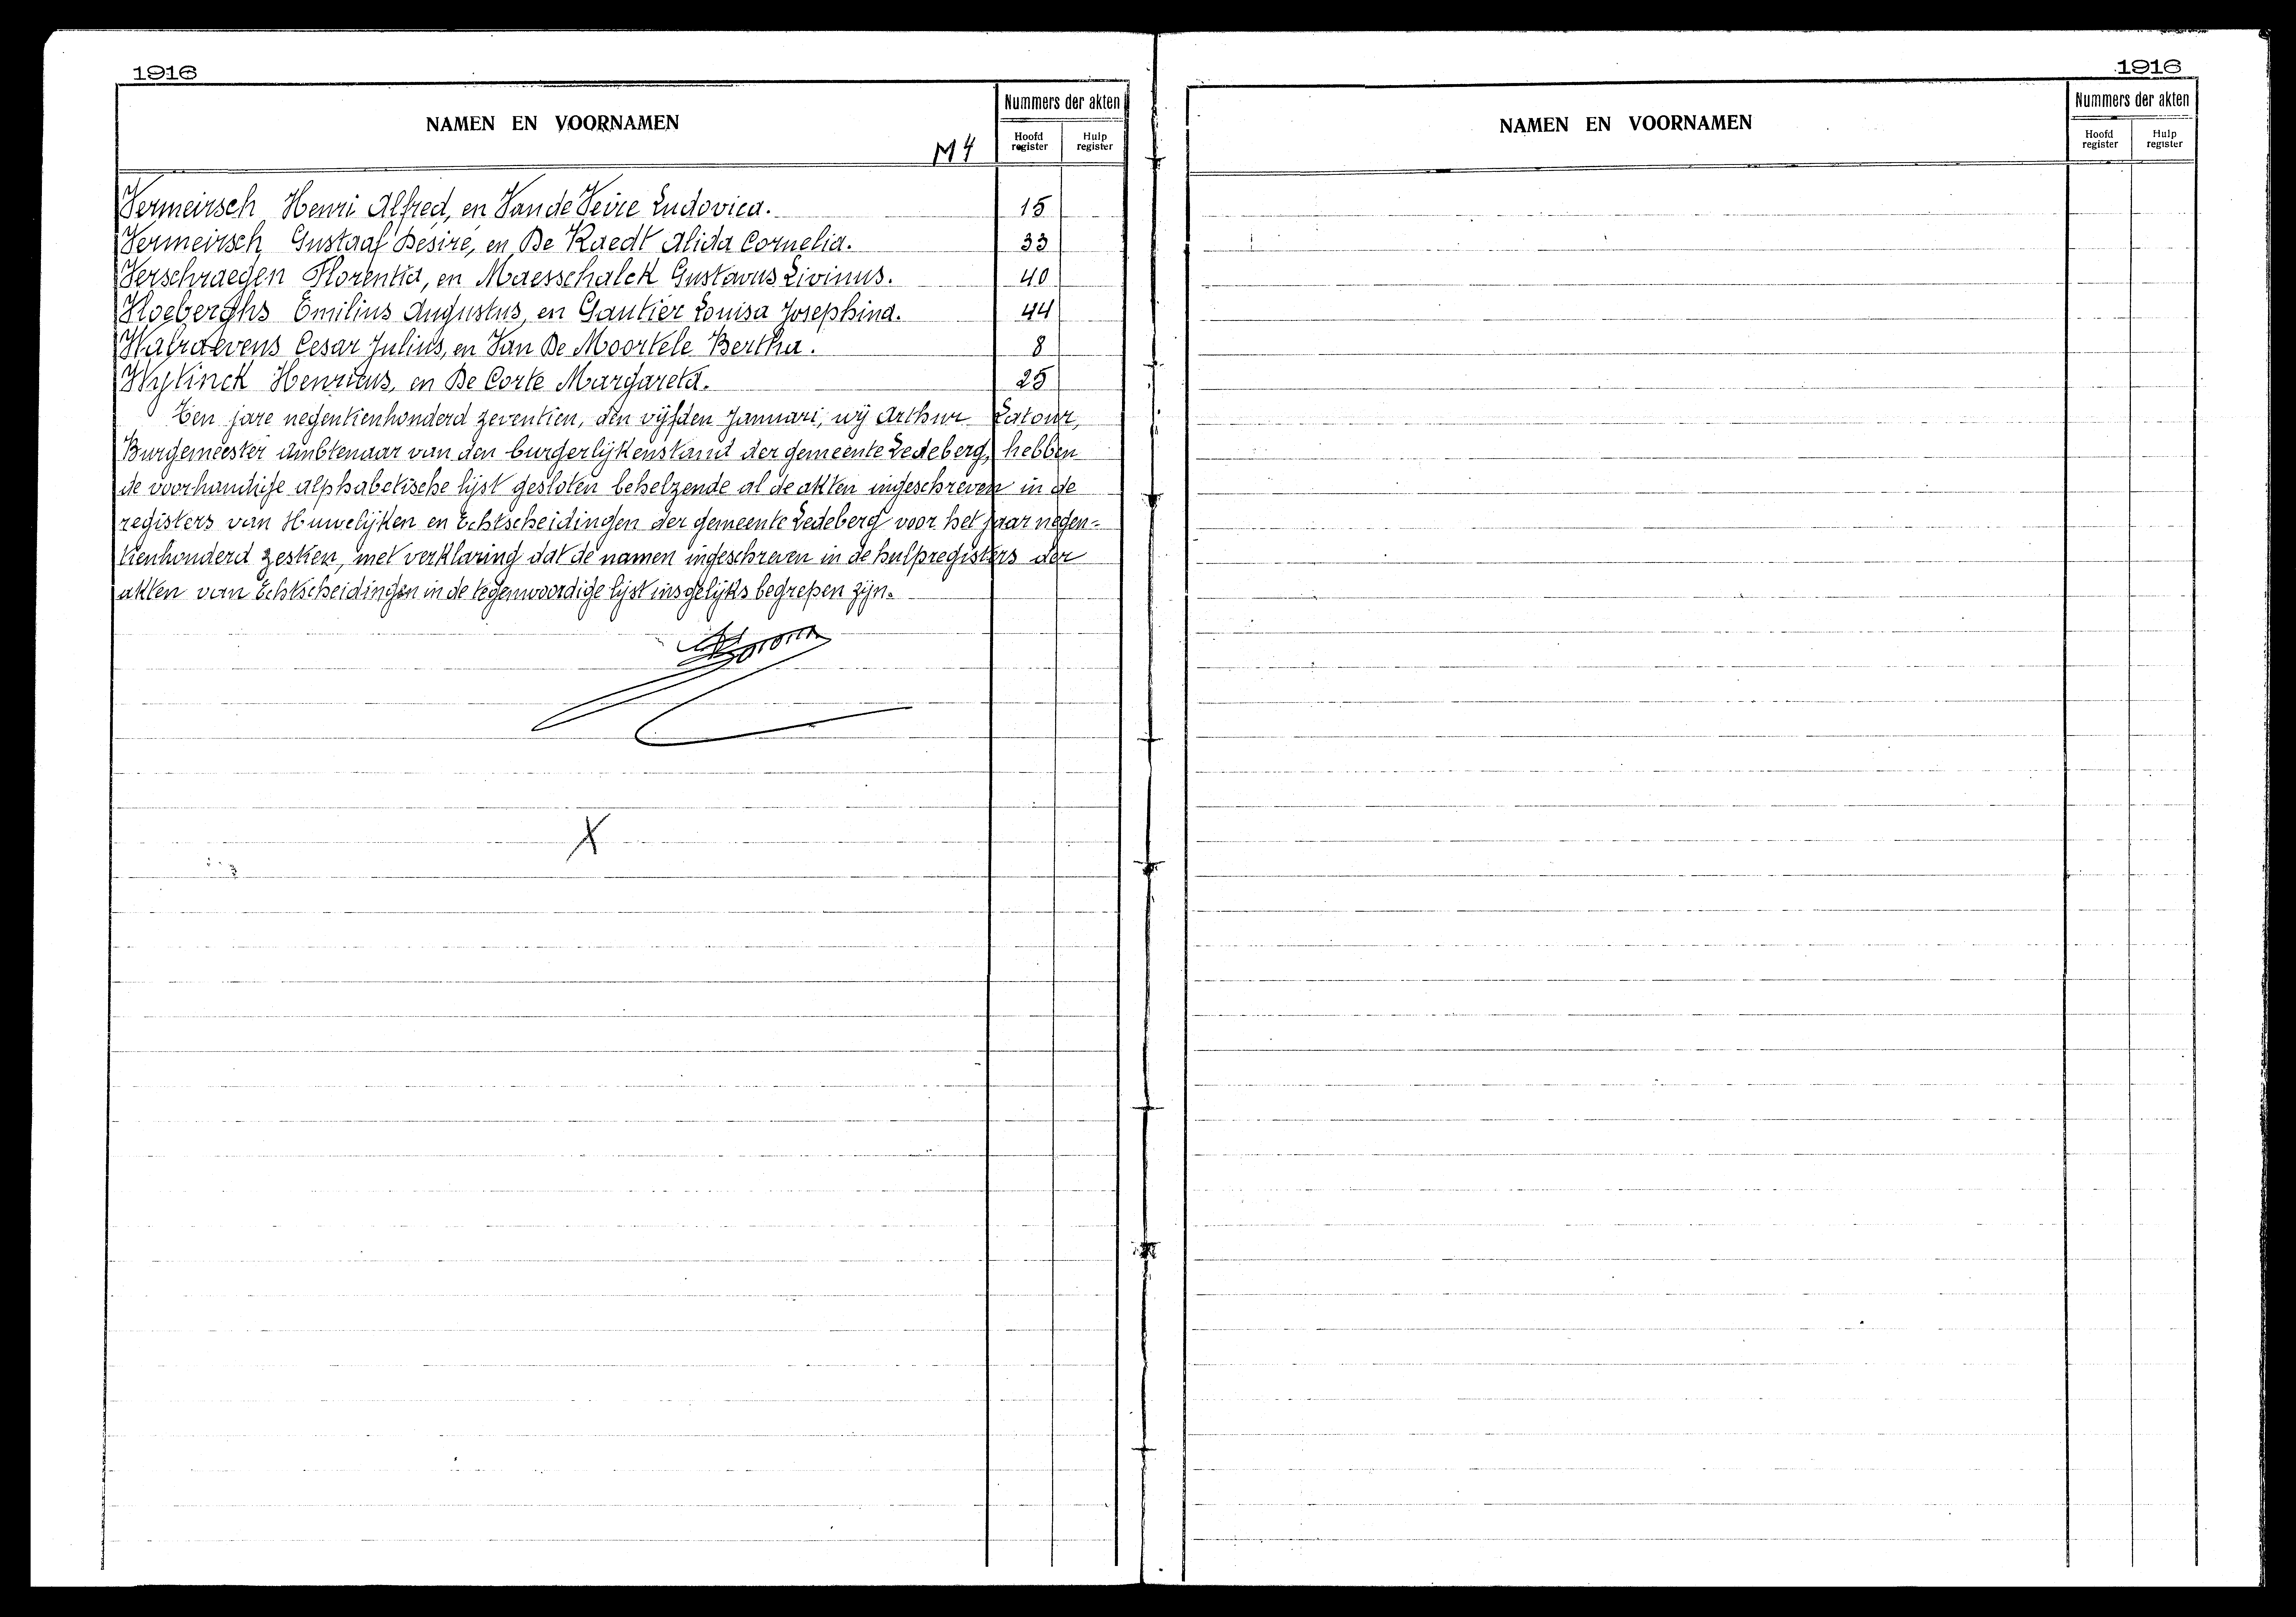 1916
NAMEN EN VOORNAMEN
M4
Nummers der akten
Hoofd register
Hulp register
Vermeirsch Henri Alfred, en Van de Veire Ludovica. 15
Vermeirsch Gustaaf Désiré, en De Raedt Alida Cornelia. 33
Verschraegen Florentia, en Maesschalck Gustavus Livinus. 40
Vloeberghs Emilius Augustus, en Gautier Louisa Josephina. 44
Walraevens Cesar Julius, en Van De Moortele Bertha. 8
Wytinck Henricus, en De Corte Margareta. 25
Ten jare negentienhonderd zeventien, den vijfden Januari, wij Arthur Latour,
Burgemeester Ambtenaar van den burgerlijkenstand der gemeente Ledeberg, hebben
de voorhandige alphabetische lijst gesloten behelzende al de akten ingeschreven in de
registers van Huwelijken en Echtscheidingen der gemeente Ledeberg voor het jaar negen-
tienhonderd zestien, met verklaring dat de namen ingeschreven in de hulpregisters der
akten van Echtscheidingen in de tegenwoordige lijst insgelijks begrepen zijn.
X
1916
NAMEN EN VOORNAMEN
Nummers der akten
Hoofd register
Hulp register